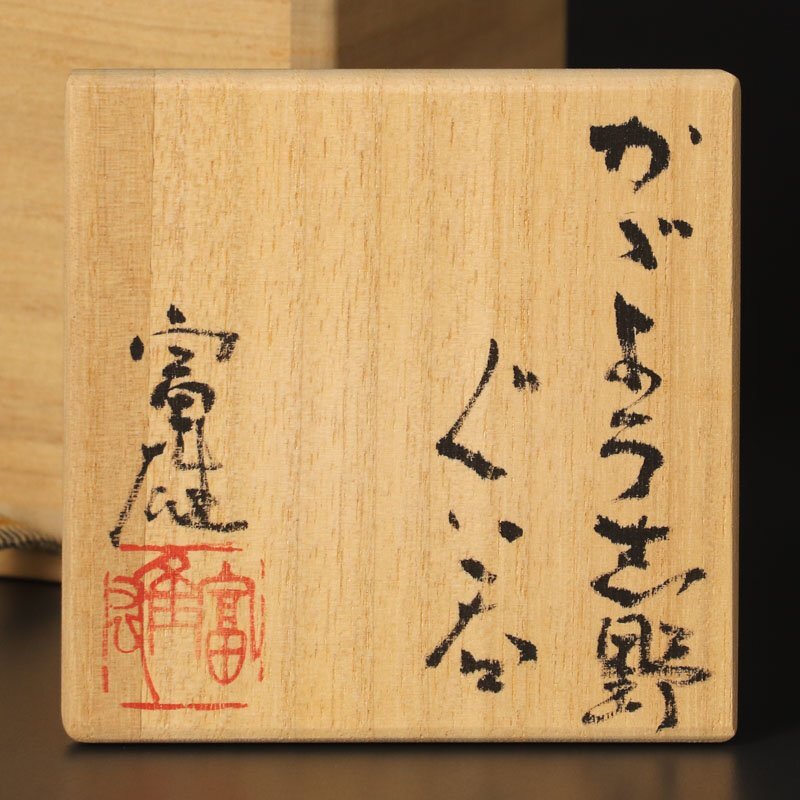 かゞよう志野
ぐい呑
富雄
富雄